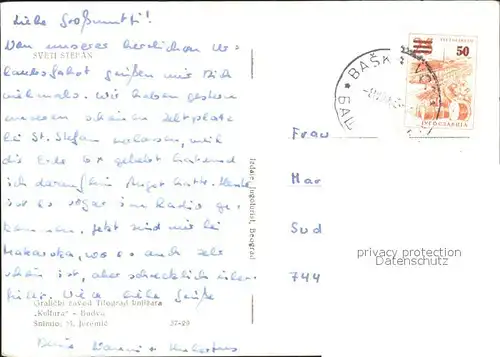 Liebe Großmutti!
Von unserer herrlichen Ur-
SVETI STEFAN
laubsfahrt grüßen wir Dich
vielmals. Wir haben gestern
unseren schönen Zeltplatz
bei St. Stefan verlassen, weil
die Erde 6x gebebt hat und
ich daraufhin Angst hatte. Heute
ist es sogar im Radio ge-
kommen. Jetzt sind wir bei
Makarska, wo es auch sehr
schön ist, aber schrecklich über-
füllt. Viele liebe Grüße
Grafički zavod Titograd knjižara
„Kultura" - Budva
Snimio: M. Jeremić 57-29
Izdaje Jugoturist, Beograd
JUGOSLAVIJA
50
ЈУГОСЛАВИЈА
BAŠKA VODA
Frau
Mar
Sud
744
privacy protection
Datenschutz